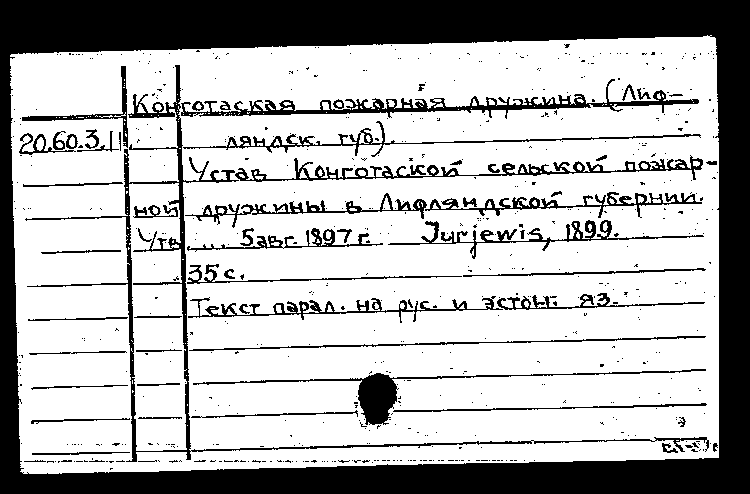 Конготаская пожарная дружина. (Лиф-
20.60.3.11. ляндск. губ.).
Устав Конготаской сельской пожар-
ной дружины в Лифляндской губернии.
Утв. ... 5 авг. 1897 г. Jurjewis, 1899.
35 с.
Текст парал. на рус. и эстон. яз.